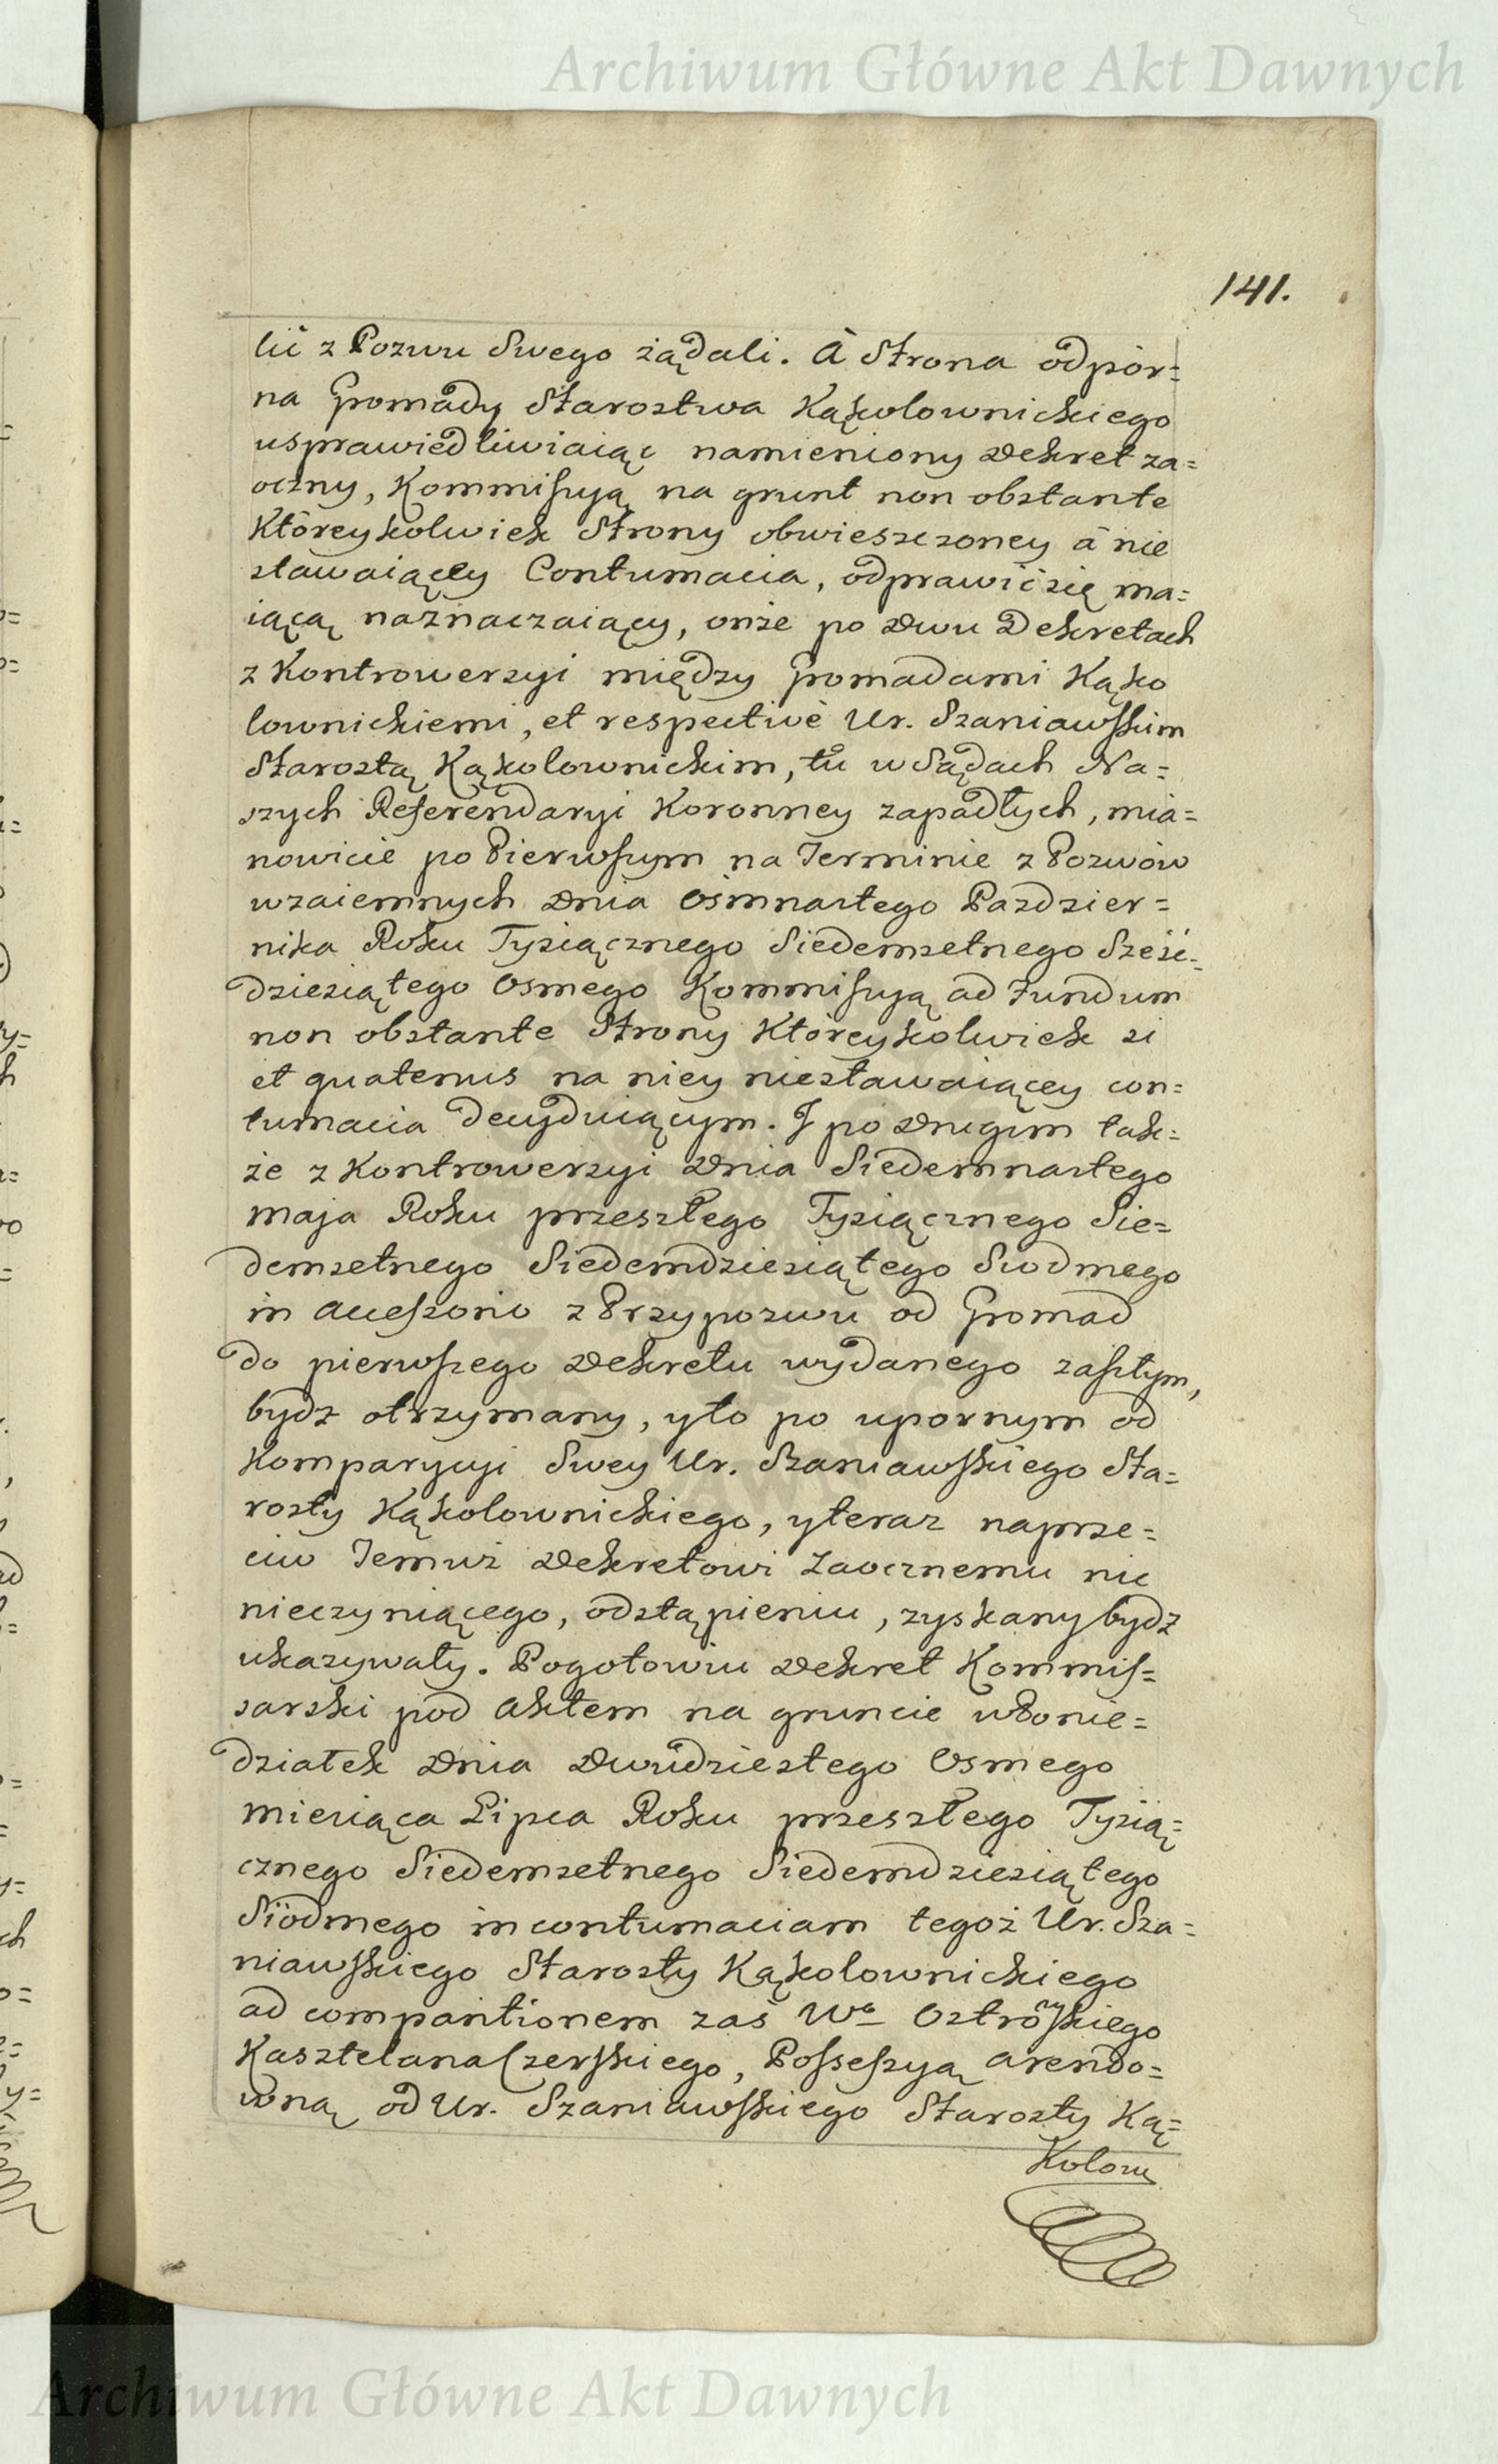 Archiwum Główne Akt Dawnych
141.
lić z Pozwu Swego żądali. A Strona odpor=
na Gromady Starostwa Kąkolownickiego
usprawiedliwiaiąc namieniony Dekret za=
oczny, Kommissyą na grunt non obstante
Któreykolwiek Strony obwieszczoney à nie
stawaiącey Contumacia, odprawić się ma=
iącą naznaczaiący, onże po Dwu Dekretach
z Kontrowersyi między Gromadami Kąko
lownickiemi, et respectivè Ur. Szaniawskim
Starostą Kąkolownickim, tu w Sądach Na=
szych Referendaryi Koronney zapadłych, mia=
nowicie po Pierwszym na Terminie z Pozwów
wzaiemnych Dnia Osimnastego Pazdzier=
nika Roku Tysiącznego Siedemsetnego Sześć=
dziesiątego Osmego Kommissyą ad Fundum
non obstante Strony Któreykolwiek si
et quatenus na niey niestawaiącey con=
tumacia decyduiącym. I po Drugim tak=
że z Kontrowersyi Dnia Siedemnastego
maja Roku przeszłego Tysiącznego Sie=
demsetnego Siedemdziesiątego Siodmego
in accessorio z Przypozwu od Gromad
do pierwszego Dekretu wydanego zaszłym,
bydz otrzymany, y to po upornym od
Komparycyi Swey Ur. Szaniawskiego Sta=
rosty Kąkolownickiego, y teraz naprze=
ciw Temuż Dekretowi Zaocznemu nic
nieczyniącego, odstąpieniu, zyskany bydz
ukazywały. Pogotowiu Dekret Kommis=
sarski pod Aktem na gruncie w Ponie=
działek Dnia Dwudziestego Osmego
miesiąca Lipca Roku przeszłego Tysią=
cznego Siedemsetnego Siedemdziesiątego
Siodmego in contumaciam tegoż Ur. Sza=
niawskiego Starosty Kąkolownickiego
ad comparitionem zaś Wo Ostrowskiego
Kasztelana Czerskiego, Possessyą arendo=
wną od Ur. Szaniawskiego Starosty Ką=
Kolow
Archiwum Główne Akt Dawnych